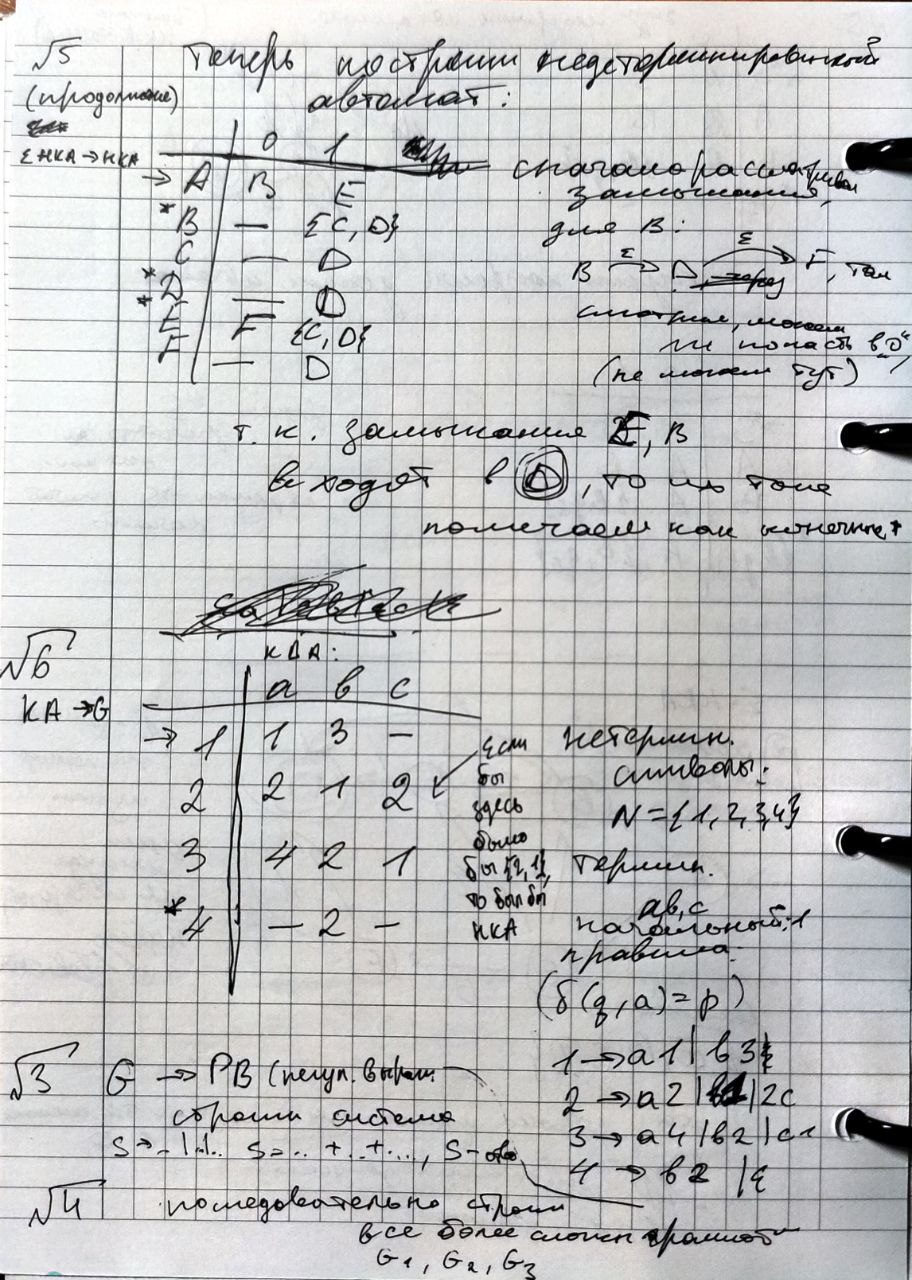 √5 Теперь построим недетерминированный
(продолжение) автомат:
ε НКА → НКА
0 1
→ A B E
* B — {C, D}
C — D
* D — D
* E F {C, D}
F — D
сначала рассматриваем
замыкания,
для B:
B ε→ D ε→ F, там
смотрим, можем
ли попасть в "0",
(не можем тут)
т. к. замыкания E, B
входят в D, то их тоже
помечаем как конечные
√6 КДА:
КА → G
a b c
→ 1 1 3 —
2 2 1 2
3 4 2 1
* 4 — 2 —
← если
бы
здесь
было
бы {2,1},
то был бы
НКА
нетермин.
символы:
N = {1, 2, 3, 4}
термин.
a b, c
начальный: 1
правила:
(δ(q, a) = p)
1 → a1 | b3
2 → a2 | b1 | 2c
3 → a4 | b2 | c1
4 → b2 | ε
√3 G → РВ (регул. выраж.
строим система
S → ..|..|.. S = .. + .. + ..., S -
√4 последовательно строим
все более сложн грамот
G1, G2, G3